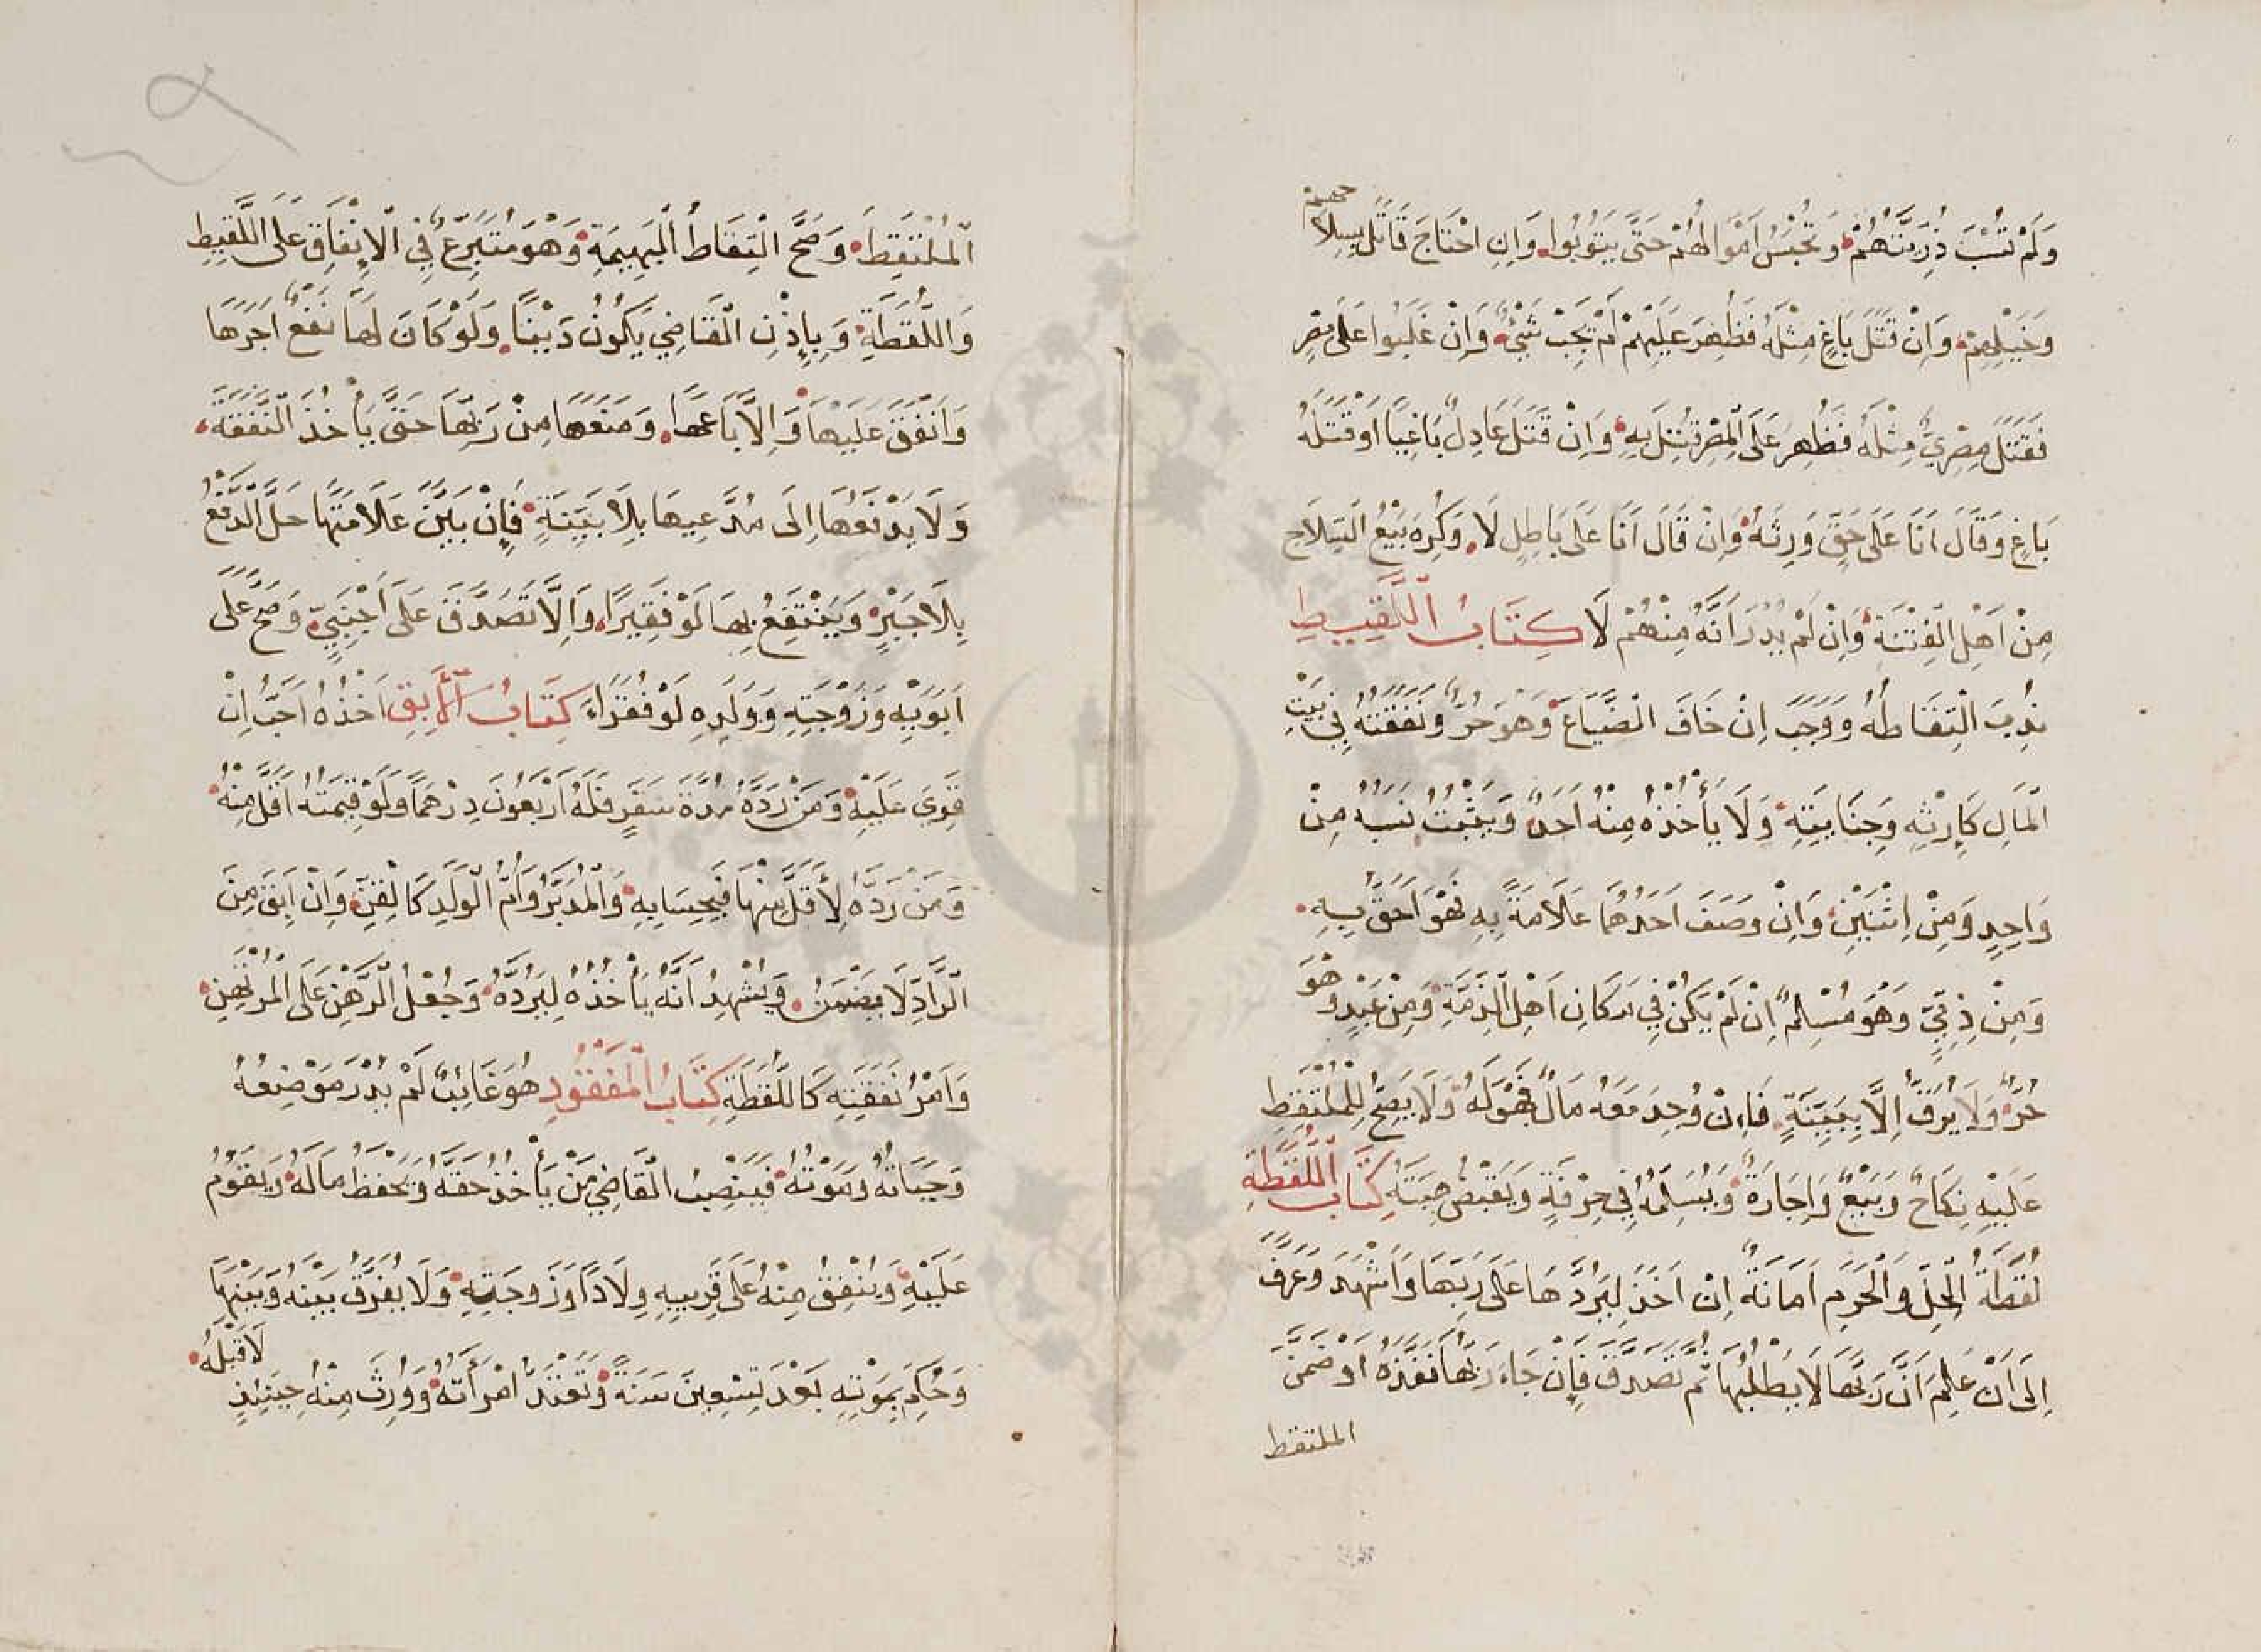 وَلَمْ تُسْبَ ذُرِّيَّتُهُمْ وَتُحْبَسُ اَمْوَالُهُمْ حَتّٰى يَتُوبُوا وَاِنِ احْتَاجَ قَاتَلَ بِسِلَاحِهِمْ
وَخَيْلِهِمْ وَاِنْ قَتَلَ بَاغٍ مِثْلَهُ فَظُهِرَ عَلَيْهِمْ لَمْ يَجِبْ شَيْءٌ وَاِنْ غَلَبُوا عَلَى مِصْرٍ
فَقَتَلَ مِصْرِيٌّ مِثْلَهُ فَظُهِرَ عَلَى الْمِصْرِ قُتِلَ بِهِ وَاِنْ قَتَلَ عَادِلٌ بَاغِيًا اَوْ قَتَلَهُ
بَاغٍ وَقَالَ اَنَا عَلَى حَقٍّ وَرِثَهُ وَاِنْ قَالَ اَنَا عَلَى بَاطِلٍ لَا وَكُرِهَ بَيْعُ السِّلَاحِ
مِنْ اَهْلِ الْفِتْنَةِ وَاِنْ لَمْ يُدْرَ اَنَّهُ مِنْهُمْ لَا كِتَابُ اللَّقِيطِ
نُدِبَ الْتِقَاطُهُ وَوَجَبَ اِنْ خَافَ الضَّيَاعَ وَهُوَ حُرٌّ وَنَفَقَتُهُ فِي بَيْتِ
الْمَالِ كَاِرْثِهِ وَجِنَايَتِهِ وَلَا يَأْخُذُهُ مِنْهُ اَحَدٌ وَيَثْبُتُ نَسَبُهُ مِنْ
وَاحِدٍ وَمِنْ اِثْنَيْنِ وَاِنْ وَصَفَ اَحَدُهُمَا عَلَامَةً بِهِ فَهُوَ اَحَقُّ بِهِ
وَمِنْ ذِمِّيٍّ وَهُوَ مُسْلِمٌ اِنْ لَمْ يَكُنْ فِي مَكَانِ اَهْلِ الذِّمَّةِ وَمِنْ عَبْدٍ وَهُوَ
حُرٌّ وَلَا يُرَقُّ اِلَّا بِبَيِّنَةٍ فَاِنْ وُجِدَ مَعَهُ مَالٌ فَهُوَ لَهُ وَلَا يَصِحُّ لِلْمُلْتَقِطِ
عَلَيْهِ نِكَاحٌ وَبَيْعٌ وَاِجَارَةٌ وَيُسَلِّمُهُ فِي حِرْفَةٍ وَيَقْبِضُ هِبَتَهُ كِتَابُ اللُّقَطَةِ
لُقَطَةُ الْحِلِّ وَالْحَرَمِ اَمَانَةٌ اِنْ اَخَذَ لِيَرُدَّهَا عَلَى رَبِّهَا وَاَشْهَدَ وَعَرَّفَ
اِلَى اَنْ عَلِمَ اَنَّ رَبَّهَا لَا يَطْلُبُهَا ثُمَّ تَصَدَّقَ فَاِنْ جَاءَ رَبُّهَا نَفَّذَهُ اَوْ ضَمَّنَ
الملتقط
الْمُلْتَقِطَ وَصَحَّ الْتِقَاطُ الْبَهِيمَةِ وَهُوَ مُتَبَرِّعٌ فِي الْاِنْفَاقِ عَلَى اللَّقِيطِ
وَاللُّقَطَةِ وَبِاِذْنِ الْقَاضِي يَكُونُ دَيْنًا وَلَوْ كَانَ لَهَا نَفْعٌ اَجَرَهَا
وَاَنْفَقَ عَلَيْهَا وَاِلَّا بَاعَهَا وَمَنَعَهَا مِنْ رَبِّهَا حَتَّى يَأْخُذَ النَّفَقَةَ
وَلَا يَدْفَعُهَا اِلَى مُدَّعِيهَا بِلَا بَيِّنَةٍ فَاِنْ بَيَّنَ عَلَامَتَهَا حَلَّ الدَّفْعُ
بِلَا جَبْرٍ وَيَنْتَفِعُ بِهَا لَوْ فَقِيرًا وَاِلَّا تَصَدَّقَ عَلَى اَجْنَبِيٍّ وَصَحَّ عَلَى
اَبَوَيْهِ وَزَوْجَتِهِ وَوَلَدِهِ لَوْ فُقَرَاءَ كِتَابُ الْاٰبِقِ اَخْذُهُ اَحَبُّ اِنْ
قَوِيَ عَلَيْهِ وَمَنْ رَدَّهُ مُدَّةَ سَفَرٍ فَلَهُ اَرْبَعُونَ دِرْهَمًا وَلَوْ قِيمَتُهُ اَقَلَّ مِنْهُ
وَمَنْ رَدَّهُ لِاَقَلَّ مِنْهَا فَبِحِسَابِهِ وَالْمُدَبَّرُ وَاُمُّ الْوَلَدِ كَالْقِنِّ وَاِنْ اَبَقَ مِنَ
الرَّادِّ لَا يَضْمَنُ وَيُشْهِدُ اَنَّهُ يَأْخُذُهُ لِيَرُدَّهُ وَجُعْلُ الرَّهْنِ عَلَى الْمُرْتَهِنِ
وَاَمْرُ نَفَقَتِهِ كَاللُّقَطَةِ كِتَابُ الْمَفْقُودِ هُوَ غَائِبٌ لَمْ يُدْرَ مَوْضِعُهُ
وَحَيَاتُهُ وَمَوْتُهُ فَيَنْصِبُ الْقَاضِي مَنْ يَأْخُذُ حَقَّهُ وَيَحْفَظُ مَالَهُ وَيَقُومُ
عَلَيْهِ وَيُنْفِقُ مِنْهُ عَلَى قَرِيبِهِ وِلَادًا وَزَوْجَتِهِ وَلَا يُفَرَّقُ بَيْنَهُ وَبَيْنَهَا
وَحُكِمَ بِمَوْتِهِ بَعْدَ تِسْعِينَ سَنَةً وَتَعْتَدُّ امْرَأَتُهُ وَوُرِثَ مِنْهُ حِينَئِذٍ لَا قَبْلَهُ